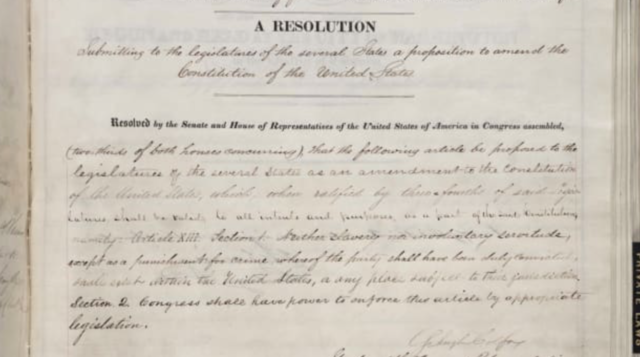 A RESOLUTION
Submitting to the legislatures of the several States a proposition to amend the
Constitution of the United States
Resolved by the Senate and House of Representatives of the United States of America in Congress assembled,
(two-thirds of both houses concurring), That the following article be proposed to the
legislatures of the several States as an amendment to the Constitution
of the United States, which when ratified by three-fourths of said
latures shall be valid, to all intents and purposes, as a part of the said Constitution
namely: Article XIII. Section 1. Neither slavery nor involuntary servitude,
except as a punishment for crime whereof the party shall have been duly convicted,
shall exist within the United States, or any place subject to their jurisdiction
Section 2. Congress shall have power to enforce this article by appropriate
legislation.
Schuyler Colfax